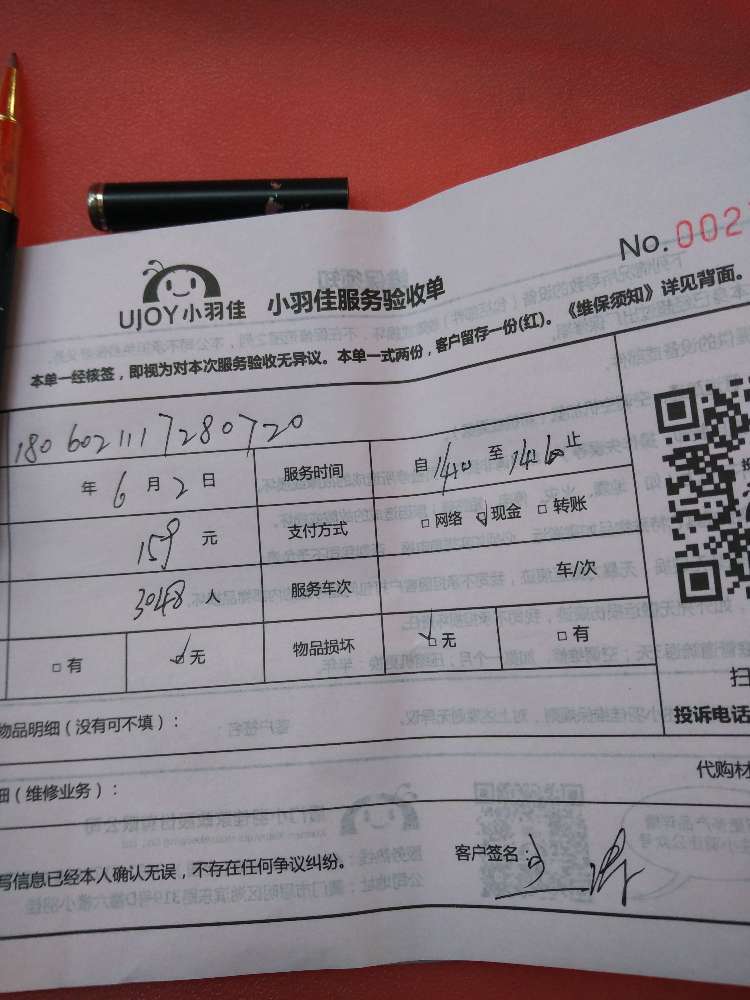 No. 002
UJOY小羽佳 小羽佳服务验收单
本单一经核签，即视为对本次服务验收无异议。本单一式两份，客户留存一份(红)。《维保须知》详见背面。
1806021117280720
年 6 月 2 日 服务时间 自 至 止
159 元 支付方式 □网络 □现金 □转账
3048 人 服务车次 车/次
□有 □无 物品损坏 □无 □有
扫
物品明细（没有可不填）：
投诉电话
代购材
细（维修业务）：
写信息已经本人确认无误，不存在任何争议纠纷。 客户签名：